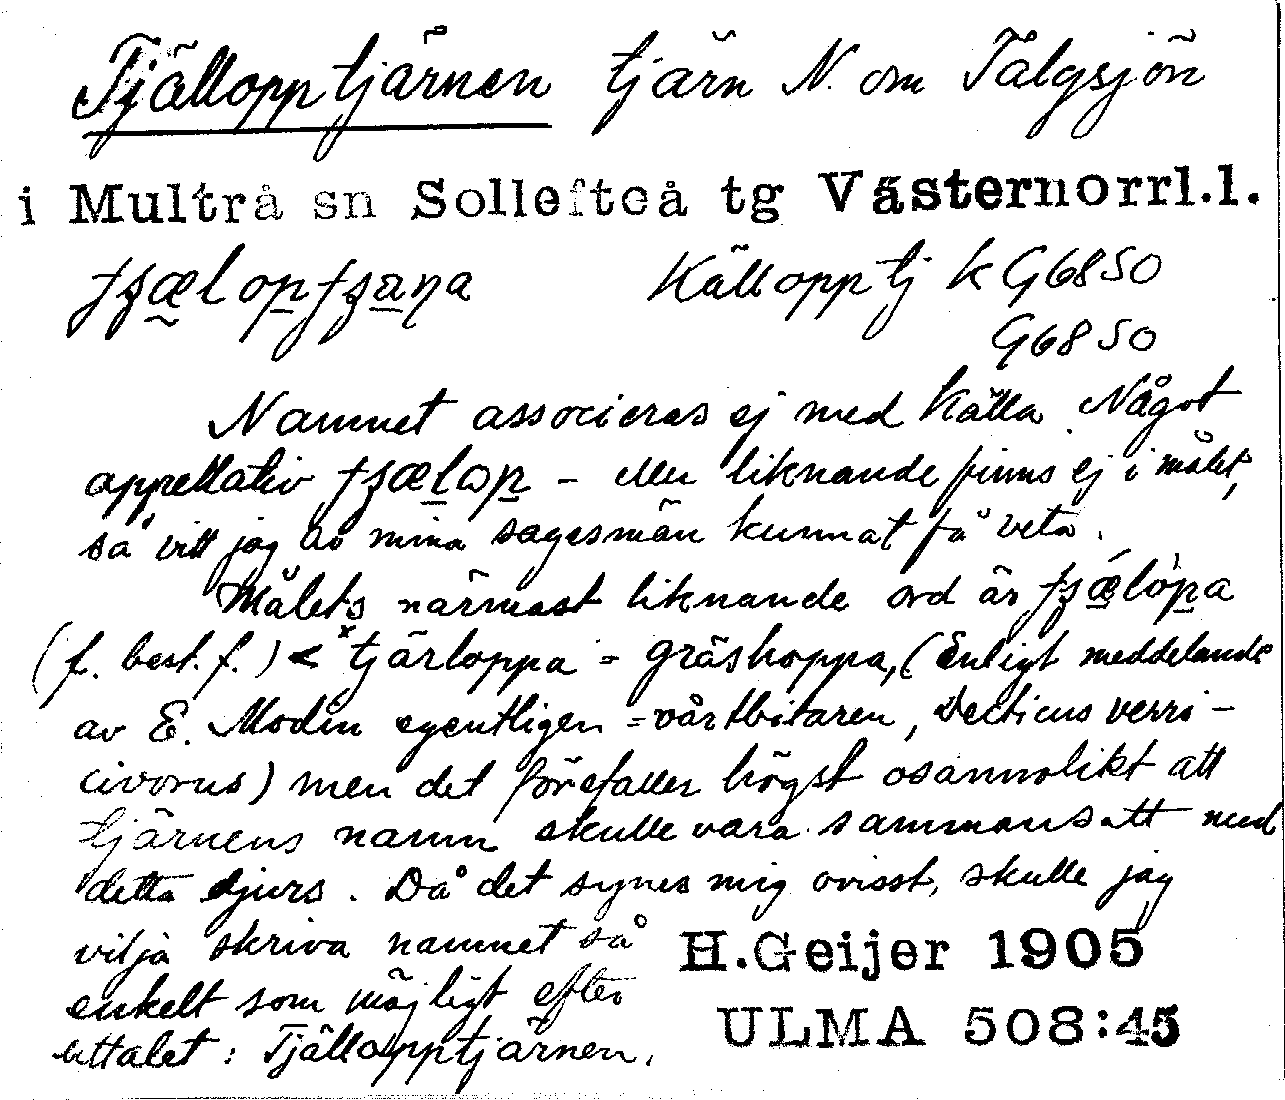 Tjällopptjärnen tjärn N. om Tälgsjön
i Multrå sn Sollefteå tg Västernorrl.l.
tʒæloptʒæɳa Källopptj k G6850
G6850
Namnet associeras ej med källa. Något
appellativ tʒælop - eller liknande finns ej i målet,
så vitt jag av mina sagesmän kunnat få veta.
Målets närmast liknande ord är tʒǽlòpa
(f. best. f.) < *tjärloppa = gräshoppa, (Enligt meddelande
av E. Modin egentligen = vårtbitaren, Decticus verri-
civorus) men det förefaller högst osannolikt att
tjärnens namn skulle vara sammansatt med
detta djurs. Då det synes mig ovisst, skulle jag
vilja skriva namnet så
enkelt som möjligt efter
uttalet: Tjällopptjärnen.
H.Geijer 1905
ULMA 508:45